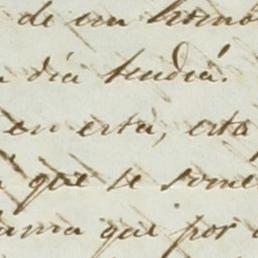 de un
día tendrá.
en esta, esta
que se some
que por